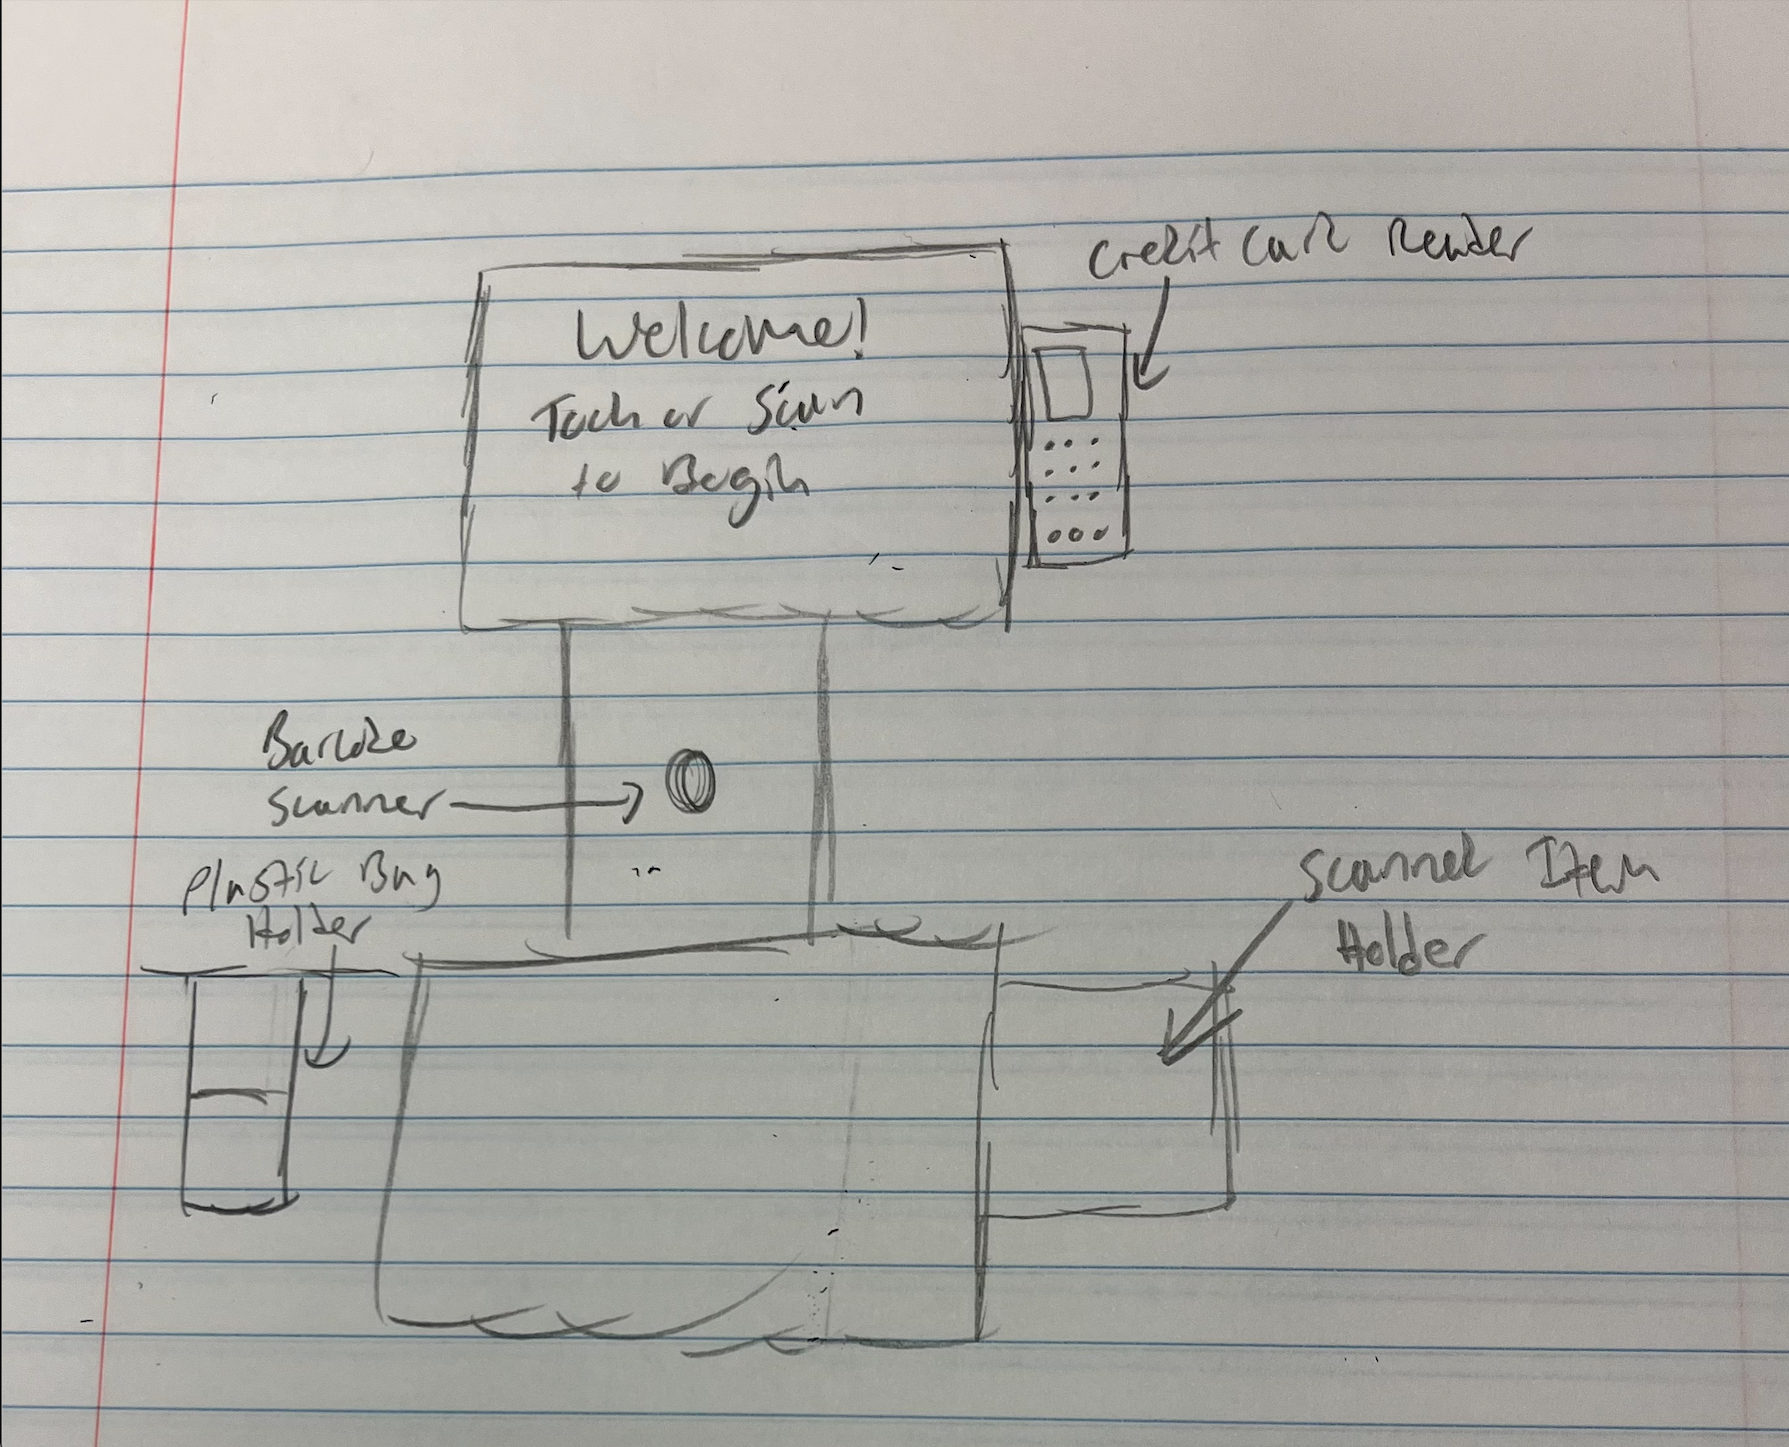 Credit Card Reader
Welcome!
Toch or Scan
to Begin
Barcode
Scanner
Plastic Bag
Holder
Scanned Item
Holder